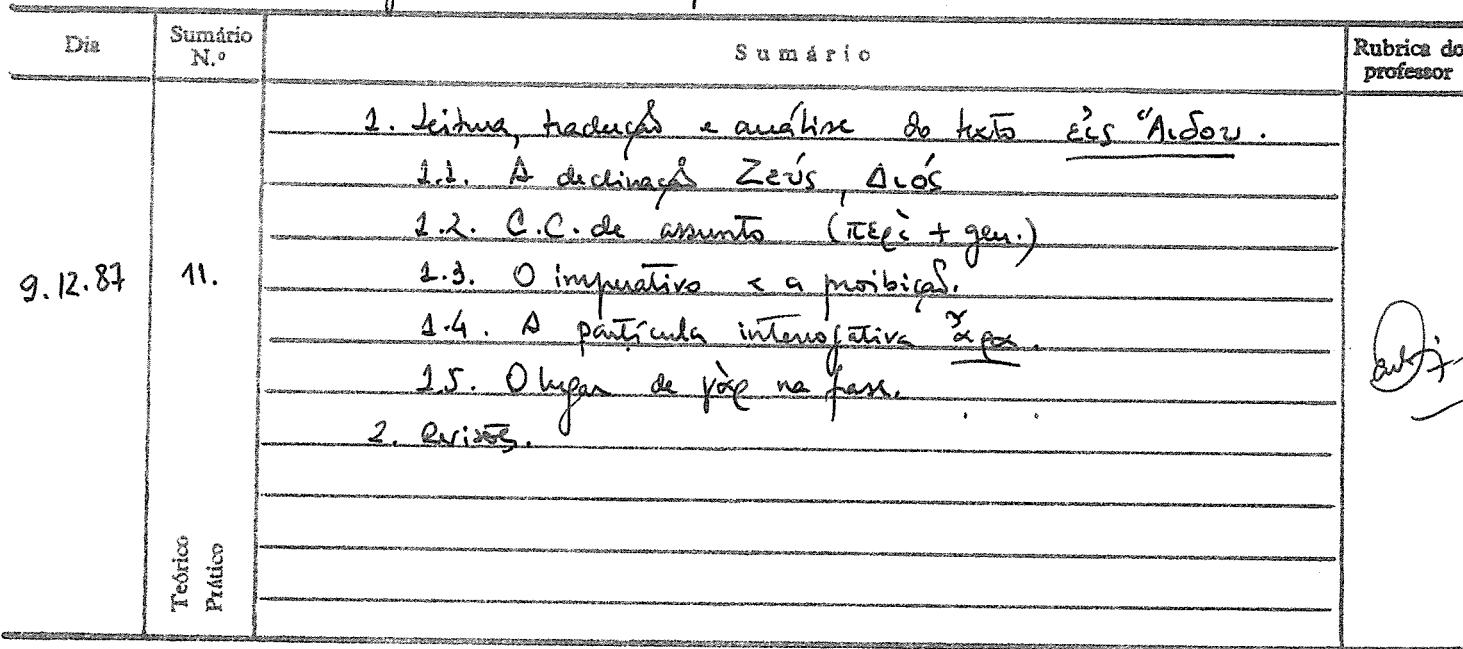 Dia Sumário N.º Sumário Rubrica do professor
1. Leitura, tradução e análise do texto εἰς Ἅιδου.
1.1. A declinação Ζεύς, Διός
1.2. C.C. de assunto (περὶ + gen.)
9.12.87 11. 1.3. O imperativo e a proibição.
1.4. A partícula interrogativa ἆρα.
1.5. O lugar de γὰρ na frase.
2. Revisões.
Teórico
Prático